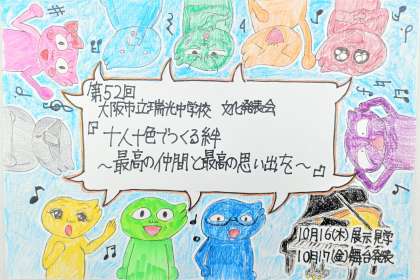 第52回
大阪市立瑞光中学校 文化発表会
『十人十色でつくる絆
～最高の仲間と最高の思い出を～』
10月16(木)展示見学
10月17(金)舞台発表